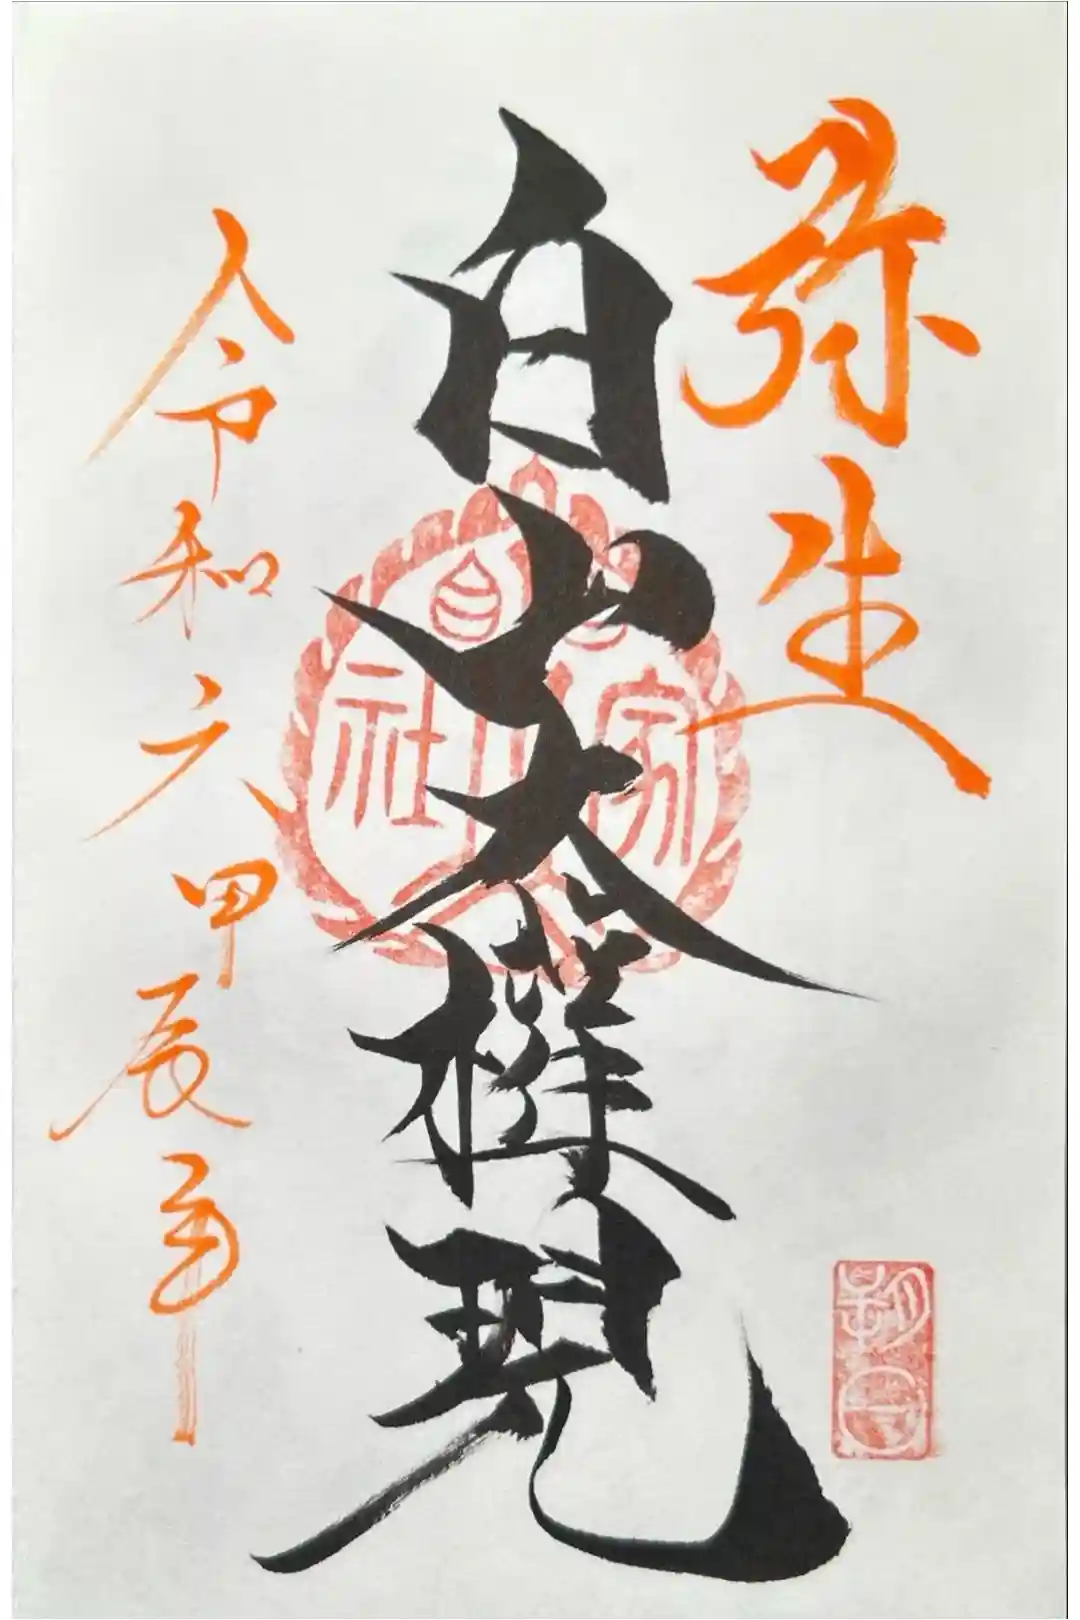 弥生
白山大権現
令和六甲辰年
社家
朔日